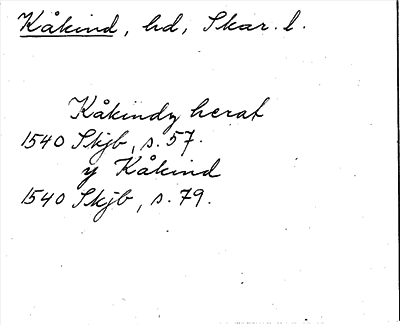 Kåkind, hd, Skar. l.
Kåkindz herat
1540 Skjb, s. 57.
y Kåkind
1540 Skjb, s. 79.